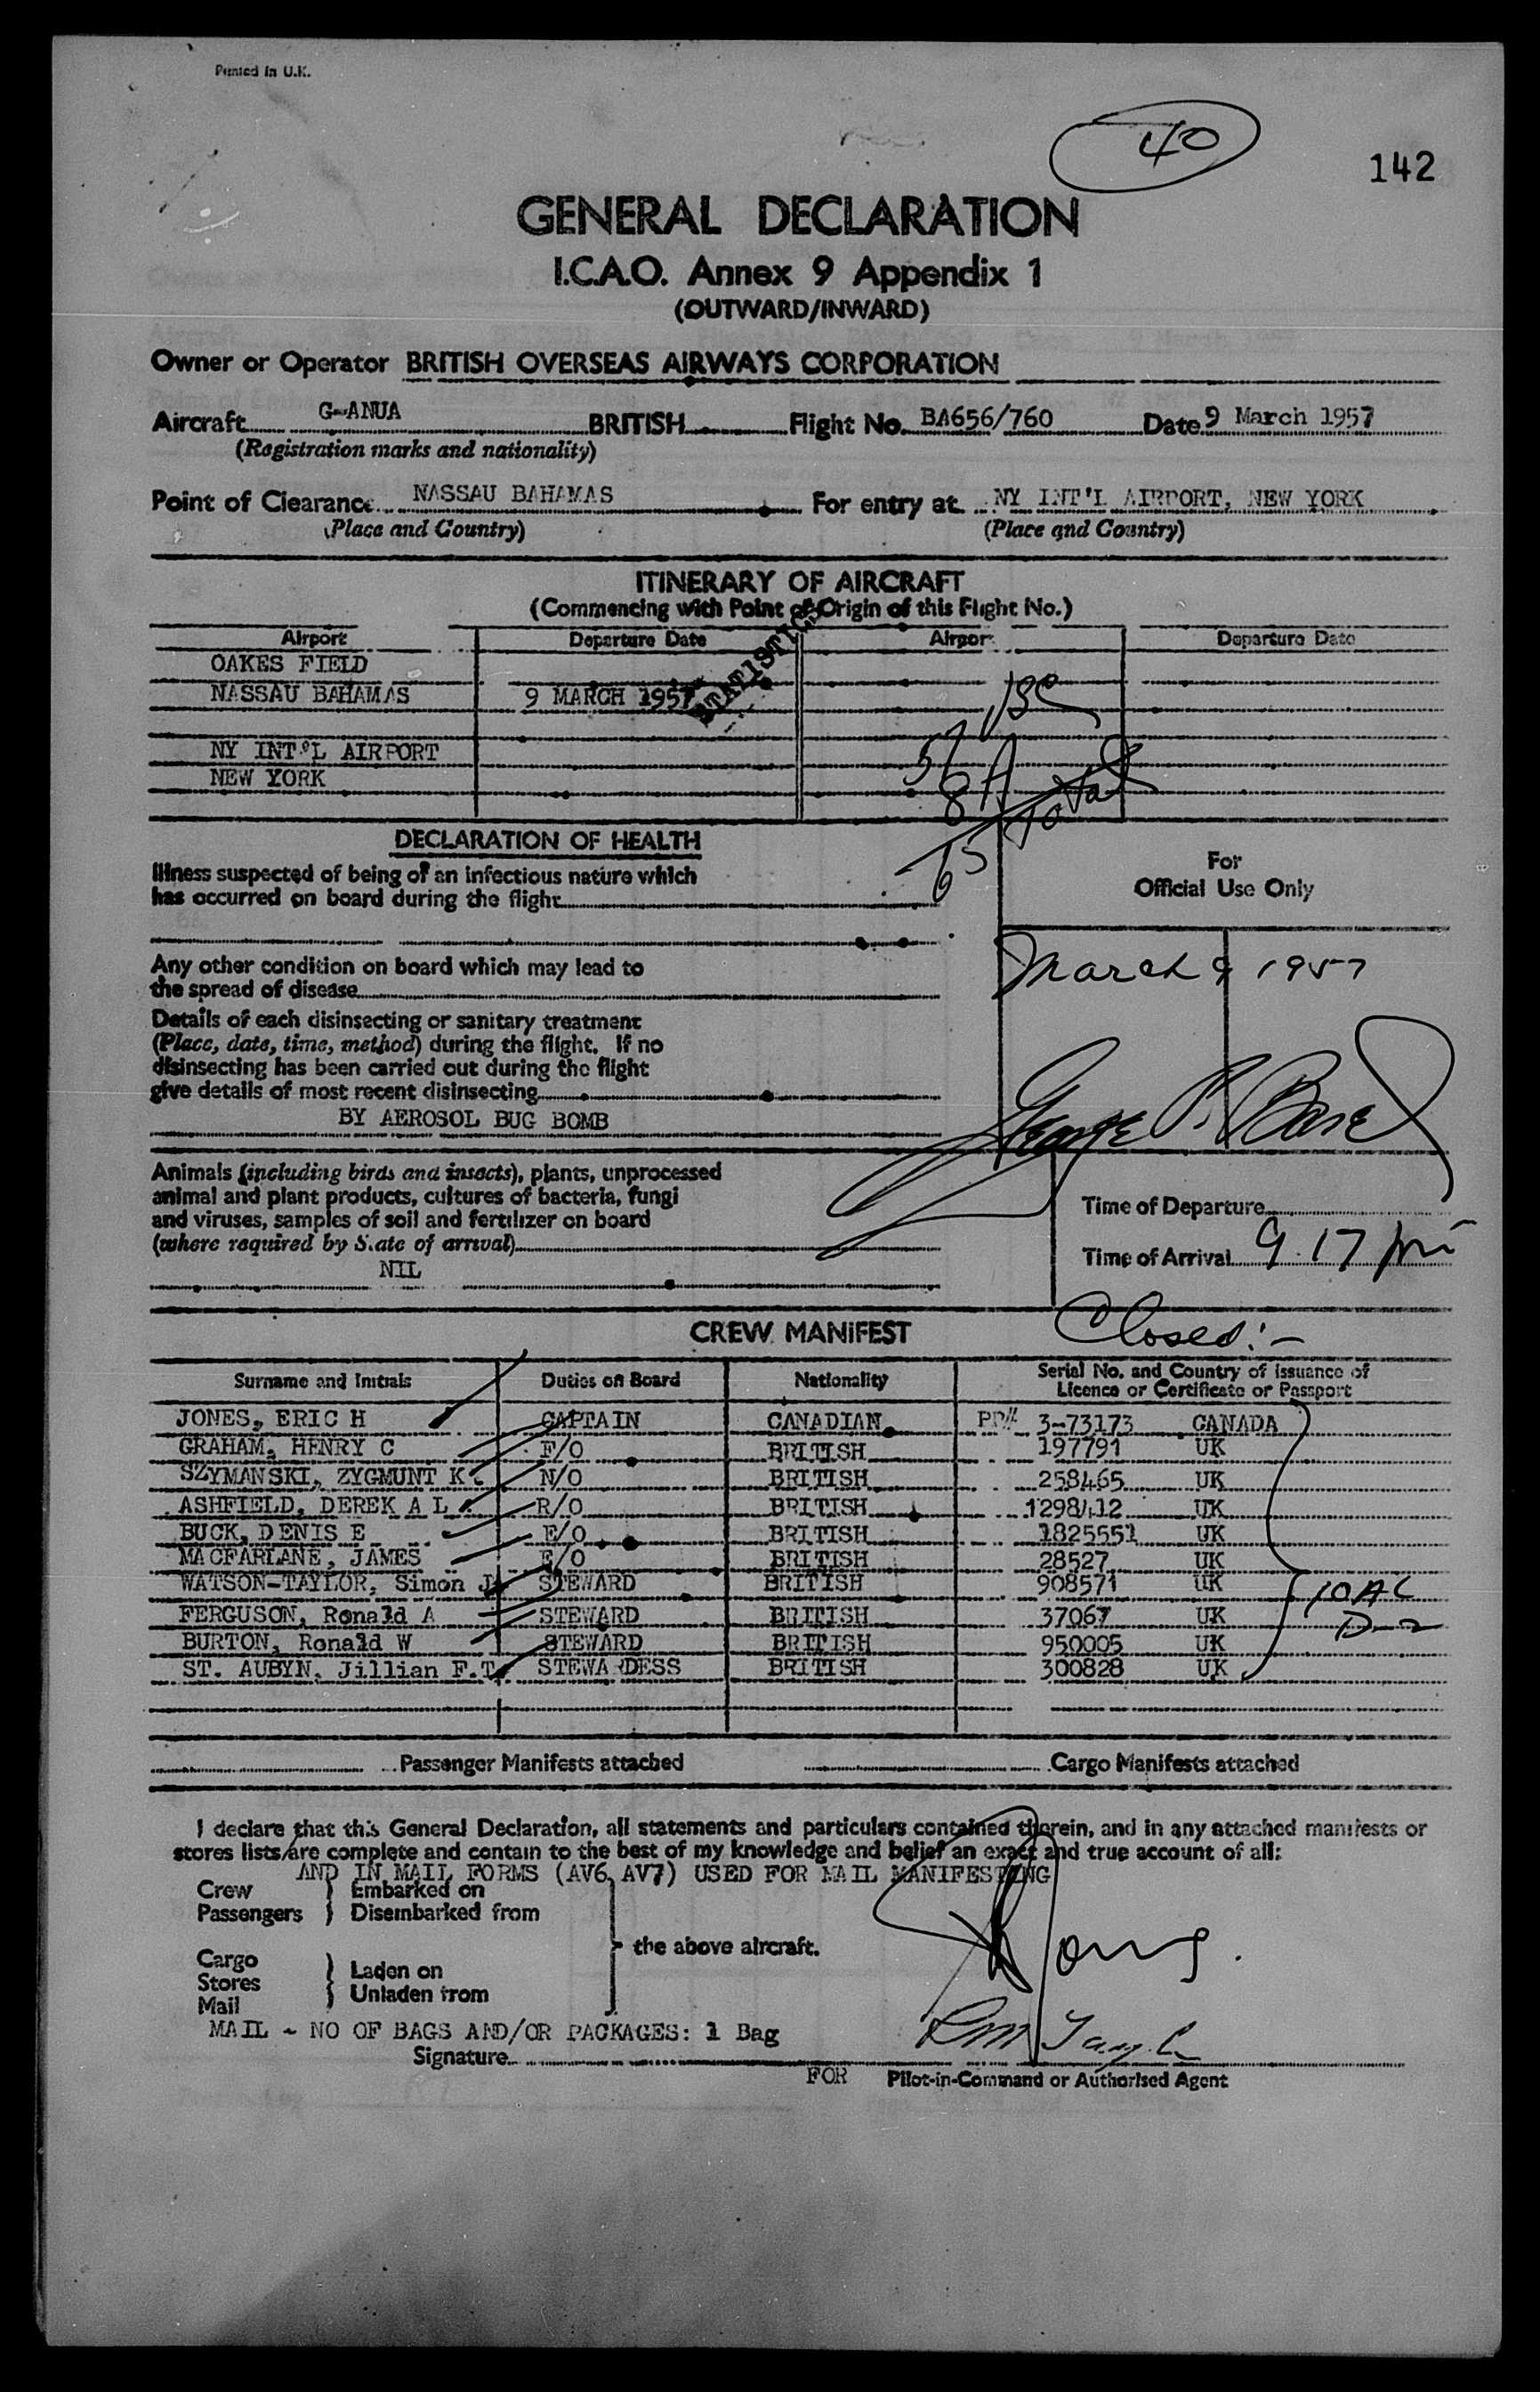 Printed in U.K.
40
142
GENERAL DECLARATION
I.C.A.O. Annex 9 Appendix 1
(OUTWARD/INWARD)
Owner or Operator BRITISH OVERSEAS AIRWAYS CORPORATION
Aircraft G-ANUA BRITISH Flight No. BA656/760 Date 9 March 1957
(Registration marks and nationality)
Point of Clearance NASSAU BAHAMAS For entry at NY INT'L AIRPORT, NEW YORK
(Place and Country) (Place and Country)
ITINERARY OF AIRCRAFT
(Commencing with Point of Origin of this Flight No.)
Airport Departure Date Airport Departure Date
OAKES FIELD
NASSAU BAHAMAS 9 MARCH 1957 STATISTICS
NY INT'L AIRPORT
NEW YORK
57
8 A
65 Total
DECLARATION OF HEALTH
Illness suspected of being of an infectious nature which
has occurred on board during the flight
For
Official Use Only
Any other condition on board which may lead to
the spread of disease
March 9 1957
Details of each disinsecting or sanitary treatment
(Place, date, time, method) during the flight. If no
disinsecting has been carried out during the flight
give details of most recent disinsecting
BY AEROSOL BUG BOMB
George P.
Animals (including birds and insects), plants, unprocessed
animal and plant products, cultures of bacteria, fungi
and viruses, samples of soil and fertilizer on board
(where required by State of arrival)
NIL
Time of Departure
Time of Arrival 9.17 pm
Closed:-
CREW MANIFEST
Surname and Initials Duties on Board Nationality Serial No. and Country of Issuance of
Licence or Certificate or Passport
JONES, ERIC H CAPTAIN CANADIAN PP# 3-73173 CANADA
GRAHAM, HENRY C F/O BRITISH 197791 UK
SZYMANSKI, ZYGMUNT K. N/O BRITISH 258465 UK
ASHFIELD, DEREK A L R/O BRITISH 1298412 UK
BUCK, DENIS E E/O BRITISH 1825551 UK
MACFARLANE, JAMES E/O BRITISH 28527 UK
WATSON-TAYLOR, Simon J STEWARD BRITISH 908571 UK
FERGUSON, Ronald A STEWARD BRITISH 37067 UK
BURTON, Ronald W STEWARD BRITISH 950005 UK
ST. AUBYN, Jillian F.T. STEWARDESS BRITISH 300828 UK
10 AC
D-2
Passenger Manifests attached Cargo Manifests attached
I declare that this General Declaration, all statements and particulars contained therein, and in any attached manifests or
stores lists are complete and contain to the best of my knowledge and belief an exact and true account of all:
AND IN MAIL FORMS (AV6, AV7) USED FOR MAIL MANIFESTING
Crew } Embarked on
Passengers } Disembarked from
the above aircraft.
Cargo
Stores } Laden on
Mail } Unladen from
MAIL - NO OF BAGS AND/OR PACKAGES: 1 Bag
Signature
FOR Pilot-in-Command or Authorised Agent